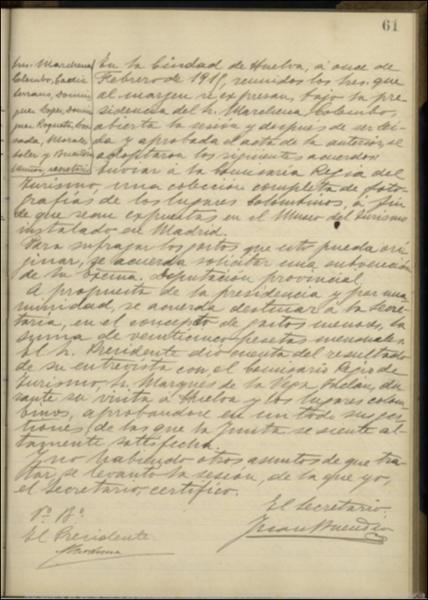 61
Sres. Marchena
Colombo, Cádiz
Serrano, Domin-
guez Lopez, Domin-
guez Roqueta,
Morales,
Soler y Buendía
Muñoz, secretario
En la Ciudad de Huelva, á once de
Febrero de 191, reunidos los Sres. que
al margen se expresan, bajo la pre-
sidencia del Sr. Marchena Colombo,
abierta la sesión y despues de ser lei-
da y aprobada el acta de la anterior, se
adoptaron los siguientes acuerdos:
Enviar á la Comisaria Regia del
Turismo, una colección completa de foto-
grafías de los lugares Colombinos, á fin
de que sean expuestas en el Museo del Turismo
instalado en Madrid.
Para sufragar los gastos que esto pueda ori-
ginar, se acuerda solicitar una subvención
de la Excma. Diputación provincial.
A propuesta de la presidencia y por una-
nimidad, se acuerda destinar á la Secre-
taria, en el concepto de gastos menores, la
suma de veinticinco pesetas mensuales.
El Sr. Presidente dió cuenta del resultado
de su entrevista con el Comisario Regio de
Turismo, Sr. Marques de la Vega Inclan, du-
rante su visita á Huelva y los lugares colom-
binos, aprobandose en un todo sus ges-
tiones, de las que la Junta se siente al-
tamente satisfecha.
Y no habiendo otros asuntos de que tra-
tar, se levantó la sesión, de la que yo,
el Secretario, certifico.
Vº Bº
El Presidente
Marchena
El Secretario,
Juan Buendía